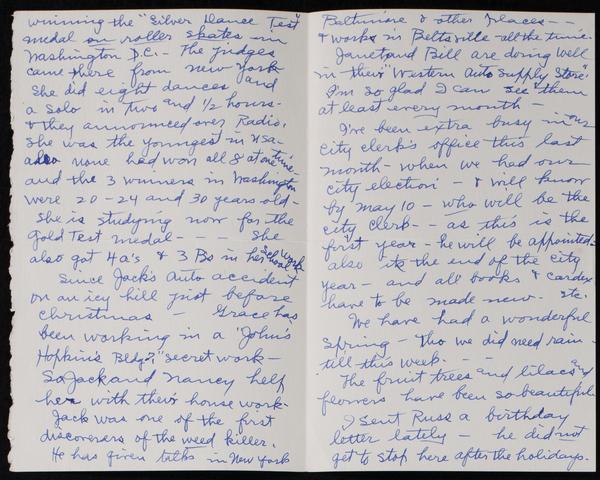 winning the "Silver Dance Test"
medal on roller skates in
Washington D.C. - The judges
came there from New York
She did eight dances and
a solo in two and ½ hours -
& they announced over Radio,
she was the youngest in USA -
also none had won all 8 at one time -
and the 3 winners in Washington
were 20 - 24 and 30 years old -
She is studying now for the
Gold Test medal - - - She
also got 4 A's & 3 Bs in her school work
Since Jack's Auto accident
on an icy hill just before
Christmas - Grace has
been working in a "John's
Hopkins Bldg," secret work -
So Jack and Nancy help
her with their house work -
Jack was one of the first
discoverers of the weed killer.
He has given talks in New York
Baltimore & other places - -
& works in Beltsville all the time.
Janet and Bill are doing well
in their "Western Auto Supply Store"
I'm so glad I can see them
at least every month -
I've been extra busy in our
City clerk's office this last
month - when we had our
city election - & will know
by May 10 - who will be the
city clerk - as this is the
first year - he will be appointed -
also its the end of the city
year - and all books & cardex
have to be made new. etc.
We have had a wonderful
spring - Tho we did need rain -
till this week. - -
The fruit trees and lilacs and
flowers have been so beautiful.
I sent Russ a birthday
letter lately - he did not
get to stop here after the holidays.